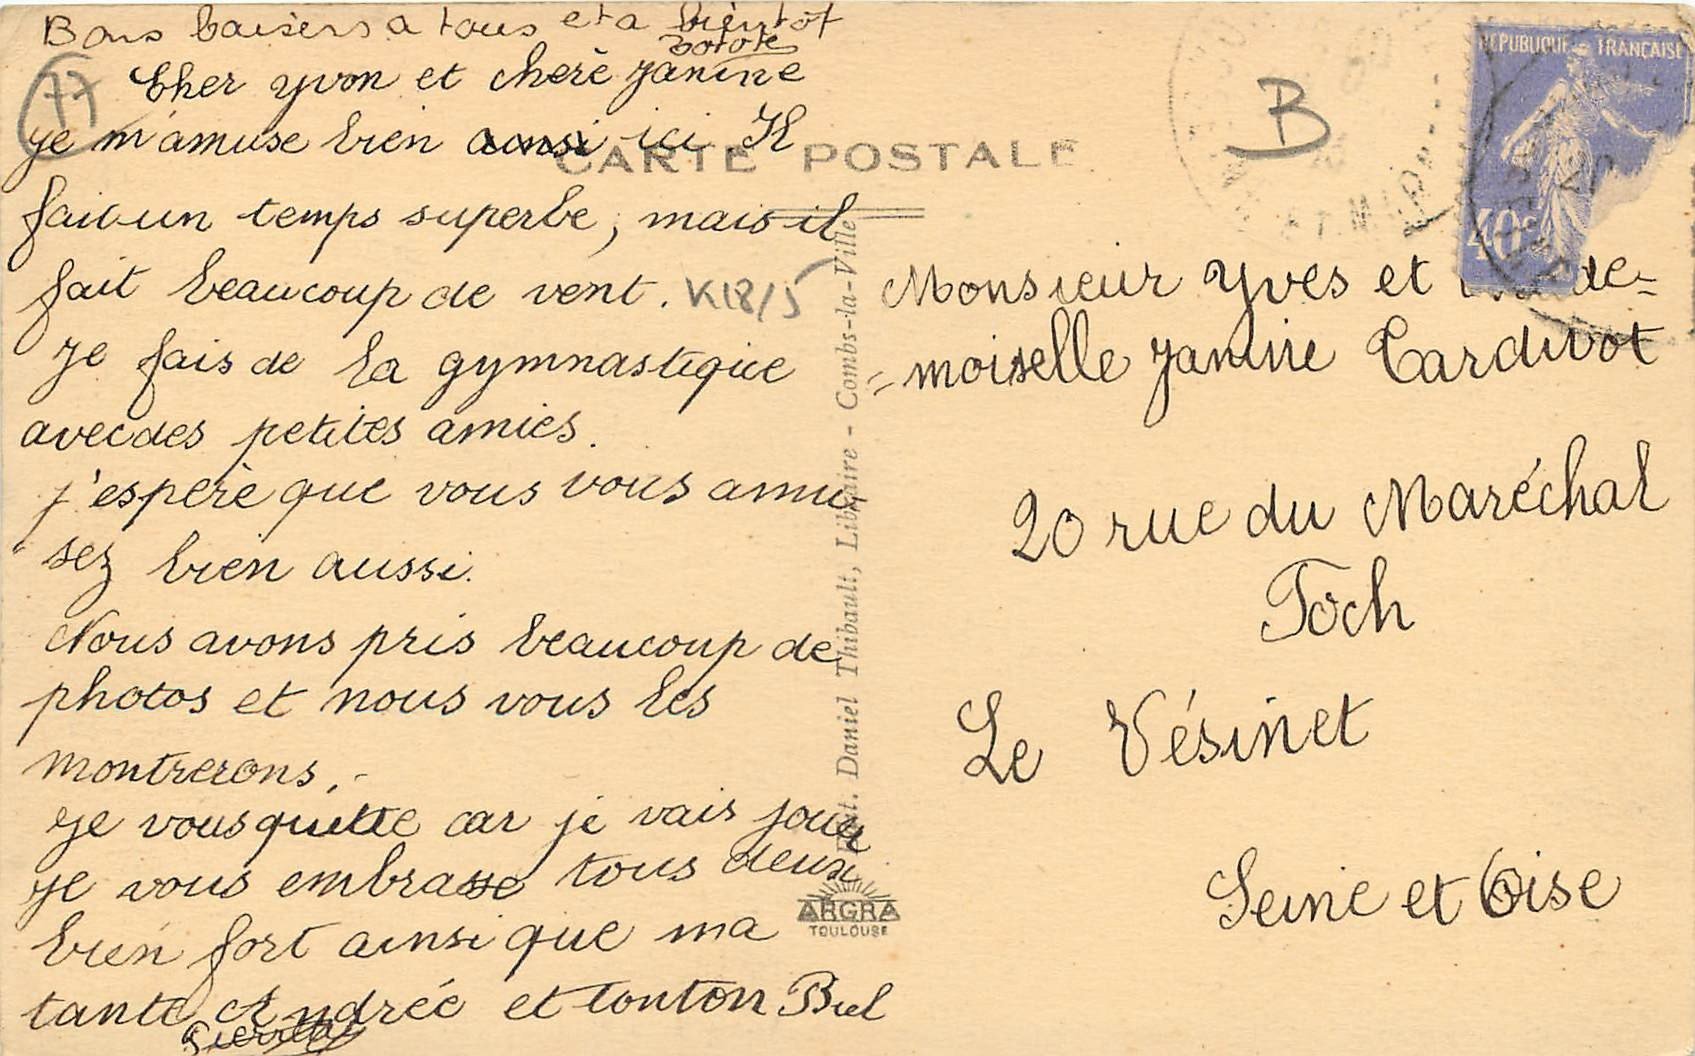 Bons baisers a tous et a bientôt
Zozote
77
Cher Yvon et cherè Janine
Je m'amuse bien ainsi ici Il
fait un temps superbe, mais il
fait beaucoup de vent.
K18/5
Je fais de la gymnastique
avec des petites amies.
j'espère que vous vous amu
sez bien aussi.
Nous avons pris beaucoup de
photos et nous vous les
montrerons.
Je vous quitte car je vais jouer
Je vous embrasse tous deux
bien fort ainsi que ma
tante Andrée et tonton Biel
Pierrette
CARTE POSTALE
Edit. Daniel Thibault, Libraire - Combs-la-Ville
ARGRA
TOULOUSE
B
REPUBLIQUE FRANÇAISE
40c
Monsieur Yves et de=
=moiselle Janine Cardivot
20 rue du Maréchal
Foch
Le Vésinet
Seine et Oise